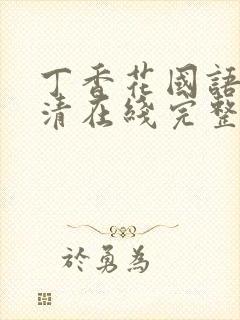 丁香花國語
清在綫完整
於勇為